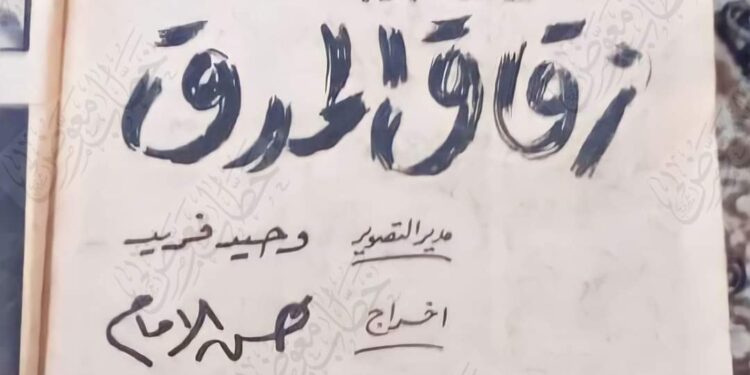 زقاق المدق
مدير التصوير وحيد فريد
اخراج حسن الامام